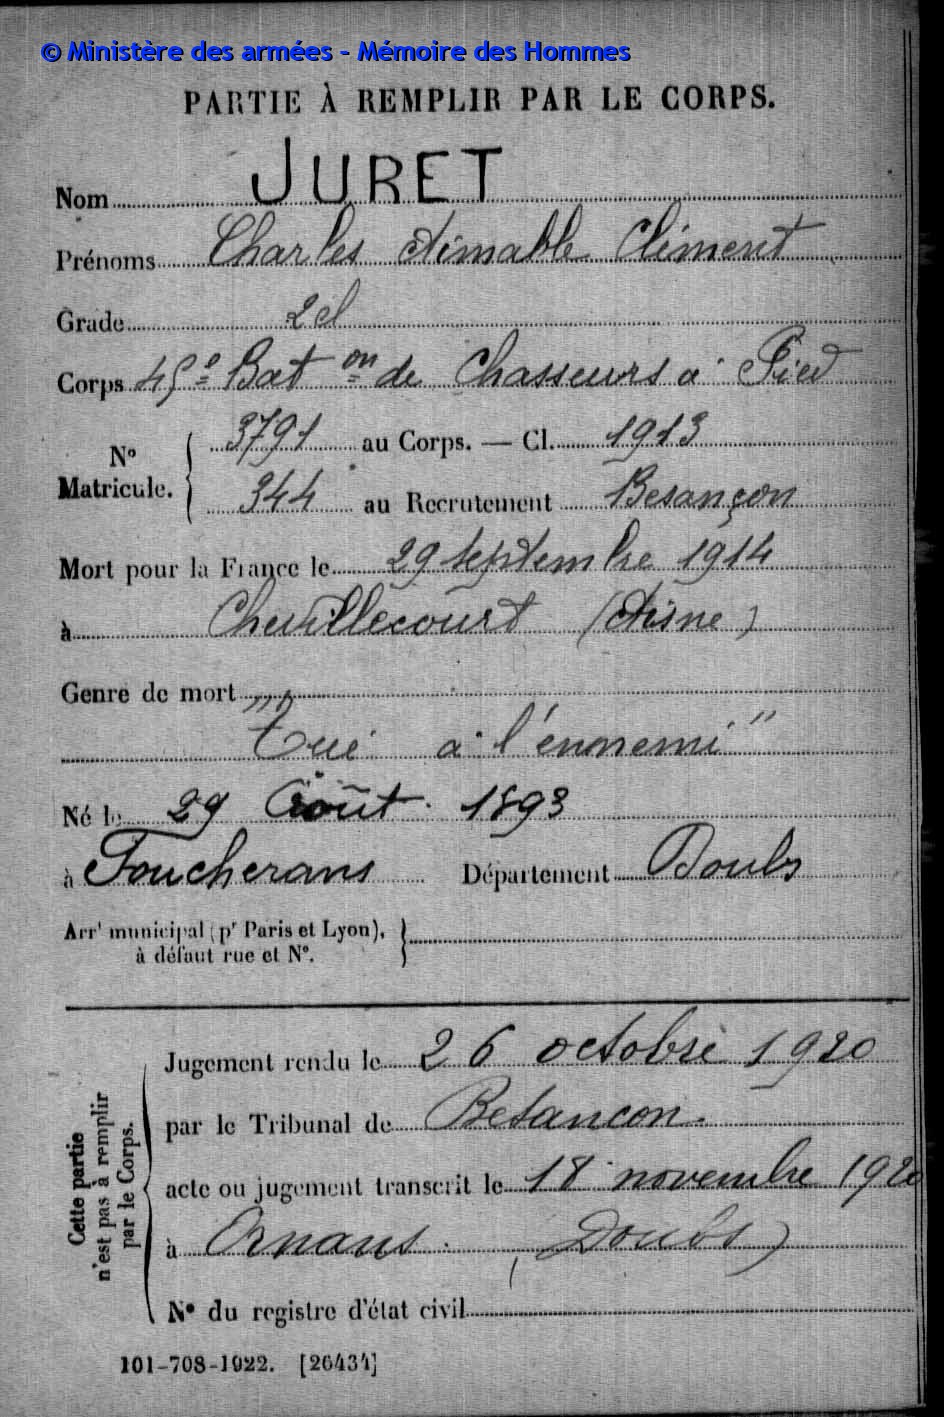 © Ministère des armées - Mémoire des Hommes
PARTIE À REMPLIR PAR LE CORPS.
Nom JURET
Prénoms Charles Aimable Clément
Grade 2 cl
Corps 45e Bat on de Chasseurs à Pied
N° Matricule. { 3791 au Corps. — Cl. 1913
344 au Recrutement Besançon
Mort pour la France le 29 septembre 1914
à Chevillecourt (Aisne)
Genre de mort
"Tué à l'ennemi"
Né le 29 Août 1893
à Foucherans Département Doubs
Arrt municipal (pr Paris et Lyon),
à défaut rue et N°.
Cette partie n'est pas à remplir par le Corps.
Jugement rendu le 26 octobre 1920
par le Tribunal de Besançon.
acte ou jugement transcrit le 18 novembre 1920
à Ornans (Doubs)
N° du registre d'état civil
101-708-1922. [26434]